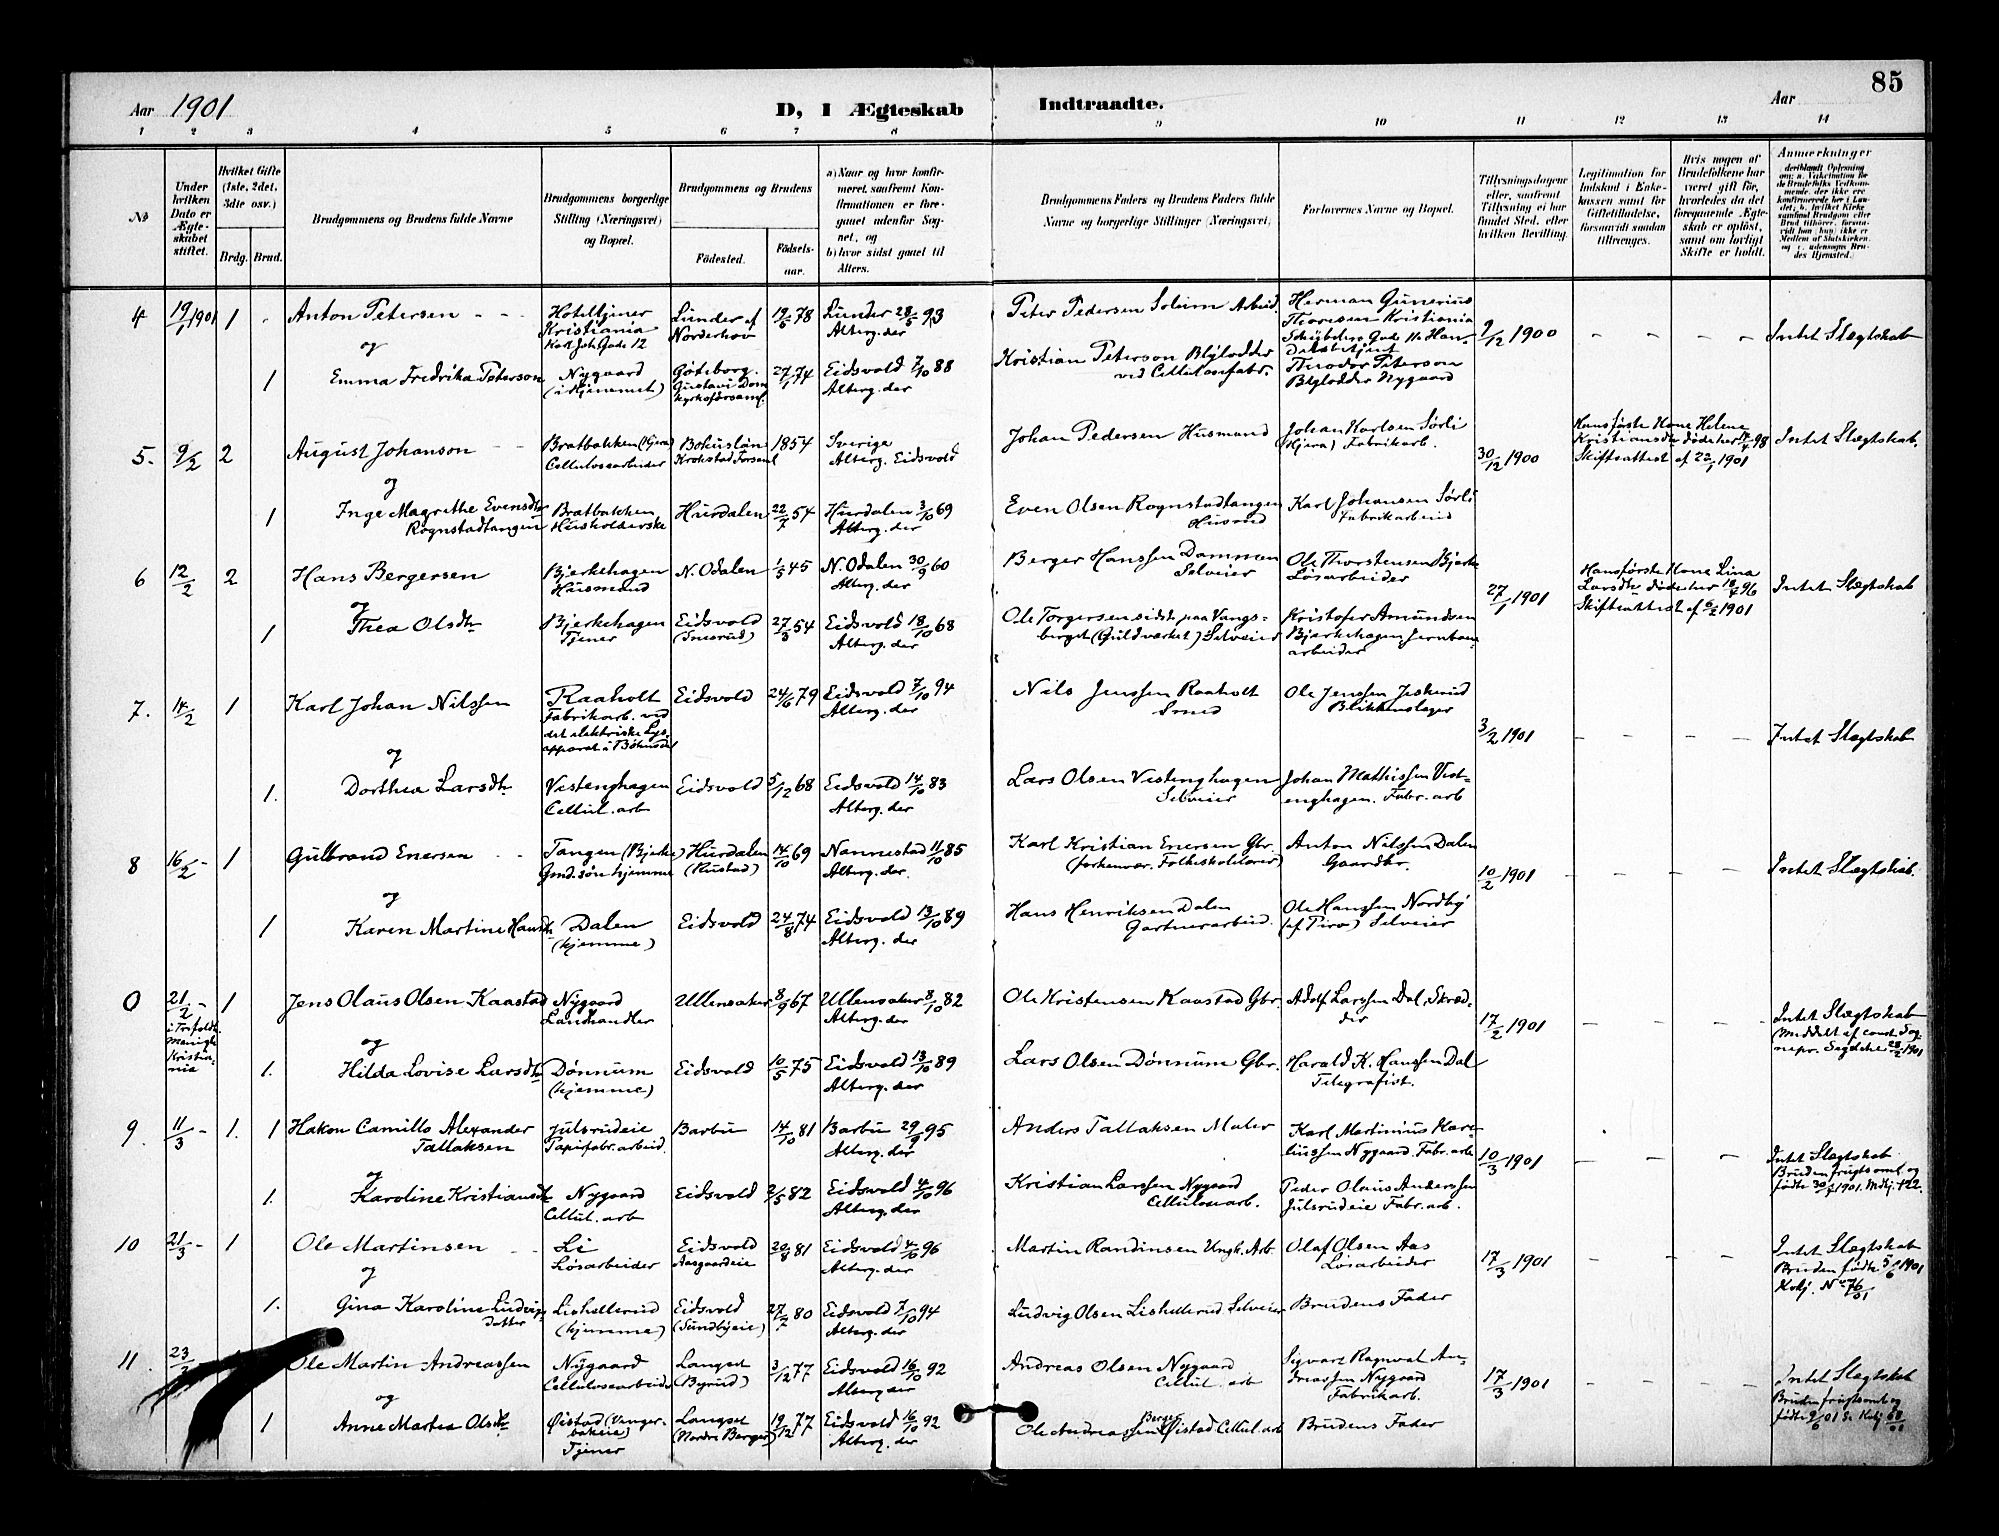 85
Aar 1901
D, I Ægteskab Indtraadte.
Aar
1 2 3 4 5 6 7 8 9 10 11 12 13 14
No
Under hvilken Dato er Ægteskabet stiftet.
Hvilket Gifte (1ste, 2det, 3die osv.)
Brdg. Brud.
Brudgommens og Brudens fulde Navne
Brudgommens borgerlige Stilling (Næringsvei) og Bopæl.
Brudgommens og Brudens
Fødested.
Fødselsaar.
a) Naar og hvor konfirmeret, saafremt Konfirmationen er foregaaet udenfor Sognet, og
b) hvor sidst gaaet til Alters.
Brudgommens Faders og Brudens Faders fulde Navne og borgerlige Stillinger (Næringsvei)
Forlovernes Navne og Bopæl.
Tillysningsdagene eller, saafremt Tillysning ei har fundet Sted, efter hvilken Bevilling.
Legitimation for Indskud i Enkekassen samt for Giftetilladelse, forsaavidt saadan tiltrænges.
Hvis nogen af Brudefolkene har været gift før, hvorledes da det foregaaende Ægteskab er opløst, samt om lovligt Skifte er holdt.
Anmerkninger
4 19/1 1901 1 Anton Petersen
Hoteltjener Kristiania Karl Joh. Gade 12
Lunder af Norderhov
19/5 78
Lunder 28/5 93 Alterg. der
Peter Pedersen Solum Arbeid.
Herman Gunerius Thoresen Kristiania
9/12 1900
Intet Slægtskab
og
1 Emma Fredrika Peterson
Nygaard (i Hjemmet)
Göteborg. Gustavi Domkyrkoförsaml.
27/1 74
Eidsvold 7/10 88 Alterg. der
Kristian Peterson Blylodder ved Cellulosefabr.
Theodor Peterson Blylodder Nygaard
5. 9/2 2 August Johanson
Bratbakken (Hjera) Cellulosearbeider
Bohuslän Krokstad Forsaml
1854
Sverige Alterg. Eidsvold
Johan Pedersen Husmand
Johan Karlsen Sørli (Hjera) Fabrikarb.
30/12 1900
Hans første Kone Helene Kristiansdtr døde her 98 Skifteattest af 22/1 1901
Intet Slægtskab.
og
1 Inge Magrethe Evensdtr Rognstadtangen
Bratbakken Husholderske
Hurdalen
22/7 54
Hurdalen 3/10 69 Alterg. der
Even Olsen Rognstadtangen Husmd
Karl Johansen Sørli Fabrikarbeid
6 12/2 2 Hans Bergersen
Bjerkehagen Husmand
N. Odalen
1/5 45
N. Odalen 30/9 60 Alterg. der
Berger Hanssen Dammen Selveier
Ole Thorstensen Bjerke Løsarbeider
27/1 1901
Hans første Kone Lina Larsdtr døde her 18/4 96 Skifteattest af 6/2 1901
Intet Slægtskab
og
1 Thea Olsdtr
Bjerkehagen Tjener
Eidsvold
27/3 54
Eidsvold 18/10 68 Alterg. der
Ole Torgersen sidst paa Vangsberget (Guldværket) Selveier
Kristofer Amundsen Bjerkehagen Jernbanearbeider
7. 14/2 1 Karl Johan Nilssen
Raaholt Fabrikarb. ved det elektriske Lysapparat i Bøhnsdal
Eidsvold
24/6 79
Eidsvold 7/10 94 Alterg. der
Nils Jenssen Raaholt Smed
Ole Jenssen Blikkenslager
3/2 1901
Intet Slægtskab
og
1. Dorthea Larsdtr
Vestenghagen Cellul. arb
Eidsvold
5/12 68
Eidsvold 14/10 83 Alterg. der
Lars Olsen Vestenghagen Selveier
Johan Mathissen Vestenghagen. Fabr. arb
8 16/2 1 Gulbrand Enersen
Tangen (Bjerke) Gmd. søn hjemme
Hurdalen (Rustad)
14/10 69
Nannestad 11/10 85 Alterg. der.
Karl Kristian Enersen Gbr. (forhenvær. Folkeskolelærer)
Anton Nilssen Dalen Gaardbr.
10/2 1901
Intet Slægtskab.
og
1 Karen Martine Hansdtr
Dalen (hjemme)
Eidsvold
24/8 74
Eidsvold 13/10 89 Alterg. der
Hans Henriksen Dalen Gartnerarbeid.
Ole Hanssen Nordby Selveier
0 21/2 1 Jens Olaus Olsen Kaastad
i Trefoldh. Menigh. Kristiania
Nygaard Landhandler
Ullensaker
8/9 67
Ullensaker 8/10 82 Alterg. der
Ole Kristensen Kaastad Gbr.
Adolf Larssen Dal, Skrædder
17/2 1901
Intet Slægtskab
og
1. Hilda Lovise Larsdtr
Dønnum (hjemme)
Eidsvold
10/5 75
Eidsvold 13/10 89 Alterg. der
Lars Olsen Dønnum Gbr.
Harald K. Hanssen Dal Telegrafist.
9. 11/3 1. 1 Hakon Camillo Alexander Tallaksen
Julsrudeie Papirfabr. arbeid.
Barbu
14/10 81
Barbu 29/9 95 Alterg. der
Anders Tallaksen Maler
Karl Martinius Nygaard. Fabr. arb
10/3 1901
Intet Slægtskab
og
1. Karoline Kristiansdtr
Nygaard Cellul. arb
Eidsvold
2/5 82
Eidsvold 4/10 96 Alterg. der
Kristian Larssen Nygaard Cellulosearb.
Peder Olaus Anderssen Julsrudeie Fabr. arb.
10 21/3 1 Ole Martinsen
Li Løsarbeider
Eidsvold Aasgaardeie
20/8 81
Eidsvold 4/10 96 Alterg. der
Martin Randinsen Ungk. Arb
Olaf Olsen Aas Løsarbeider
17/3 1901
Intet Slægtskab Bruden fødte 5/6 1901 Kobj. No 76/01
og
1. Gina Karoline Ludvigsdatter
Lishellerud (hjemme)
Eidsvold (Sundbyeie)
27/7 80
Eidsvold 7/10 94 Alterg. der
Ludvig Olsen Lishellerud Selveier
Brudens Fader
11. 23 Ole Martin Andreassen
Nygaard Cellulosearbeider
Langset (Byrud)
3/12 77
Eidsvold 16/10 92 Alterg der
Andreas Olsen Nygaard Cellul. arb
Sigvart Ragnvat Andreassen Nygaard Fabrikarb.
17/3 1901
Intet Slægtskab
og
1 Anne Martea Olsdtr
Øistad Tjener
Langset (Nordre Berger)
19/12 77
Eidsvold 16/10 92 Alterg. der
Ole Andreassen Berger Øistad Cellul. arb
Brudens Fader